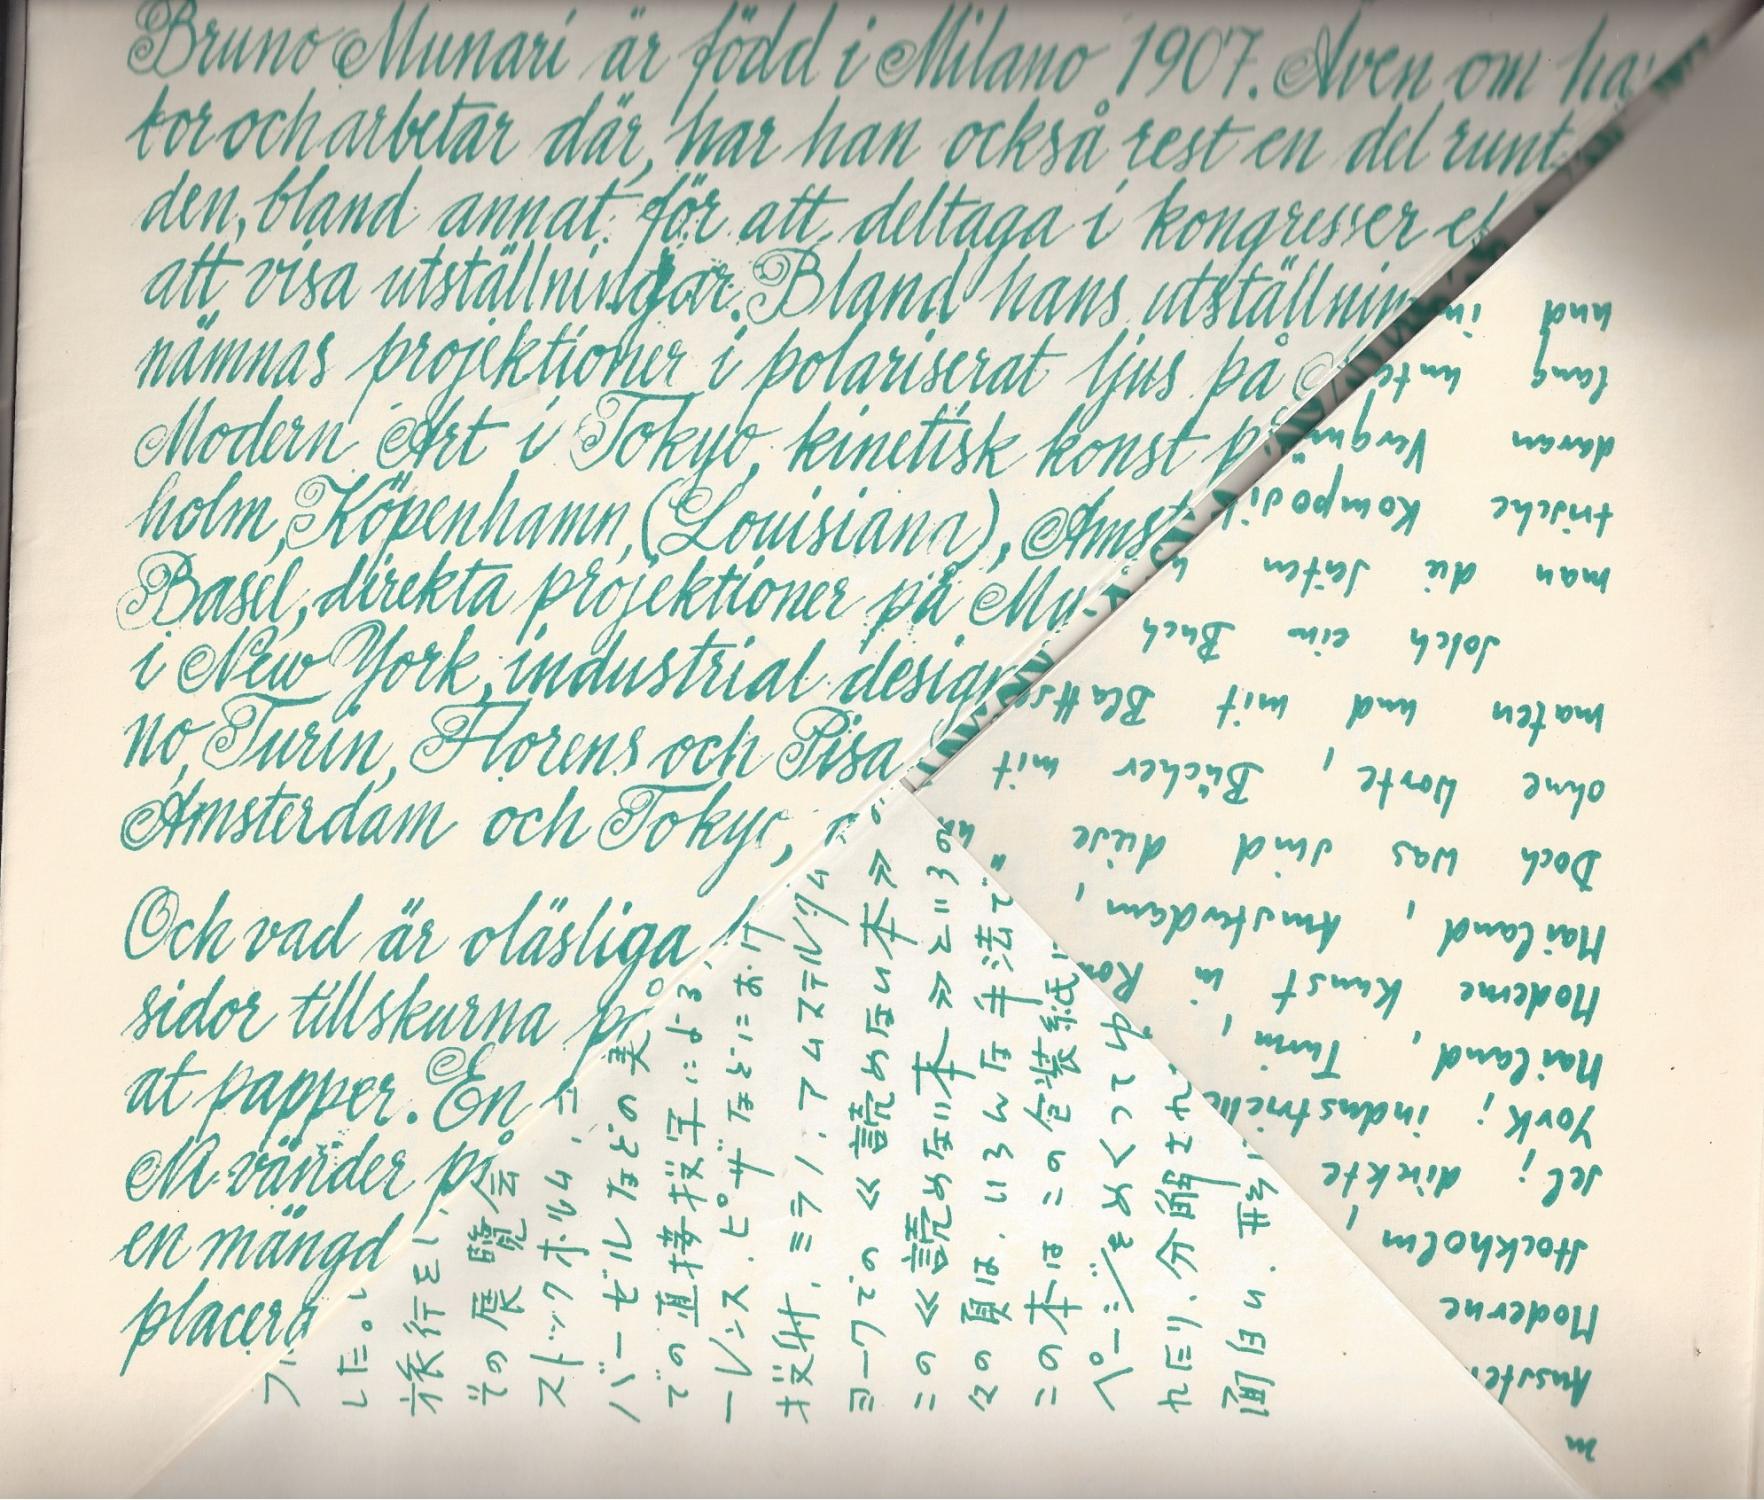 Bruno Munari är född i Milano 1907. Även om ha
tor och arbetar där, har han också rest en del runt
den, bland annat för att deltaga i kongresser el
att visa utställningar. Bland hans utställnin
nämnas projektioner i polariserat ljus på
Modern Art i Tokyo, kinetisk konst p
holm, Köpenhamn, (Louisiana), Amst
Basel, direkta projektioner på Mu
i New York, industrial design
no, Turin, Florens och Pisa,
Amsterdam och Tokyo,
Och vad är oläsliga
sidor tillskurna på
at papper. En
M vänder på
en mängd
placera
した。し
旅行をし
での展覧会
ストックホルム、
バーゼルなどの美
での直接投写による、
ーレンス、ピサなどにおけ
投射、ミラノ、アムステルダム
ヨークでの≪読めない本≫
この≪読めない本≫という
々の頁は、いろんな手法で
この本はこの包装紙
ページをめくってゆ
れたり、分解され
面白い、形
m
Ausstel
Moderne
Stockholm,
sel; direkte
York; industrielle
Mailand, Turin,
Moderne Kunst in Rom
Mailand, Amsterdam,
Doch was sind diese
ohne Worte, Bücher mit
maten und mit Blatts
solch ein Buch
man die Seiten
trische Komposi
daran Vergnü
lang unte
und in